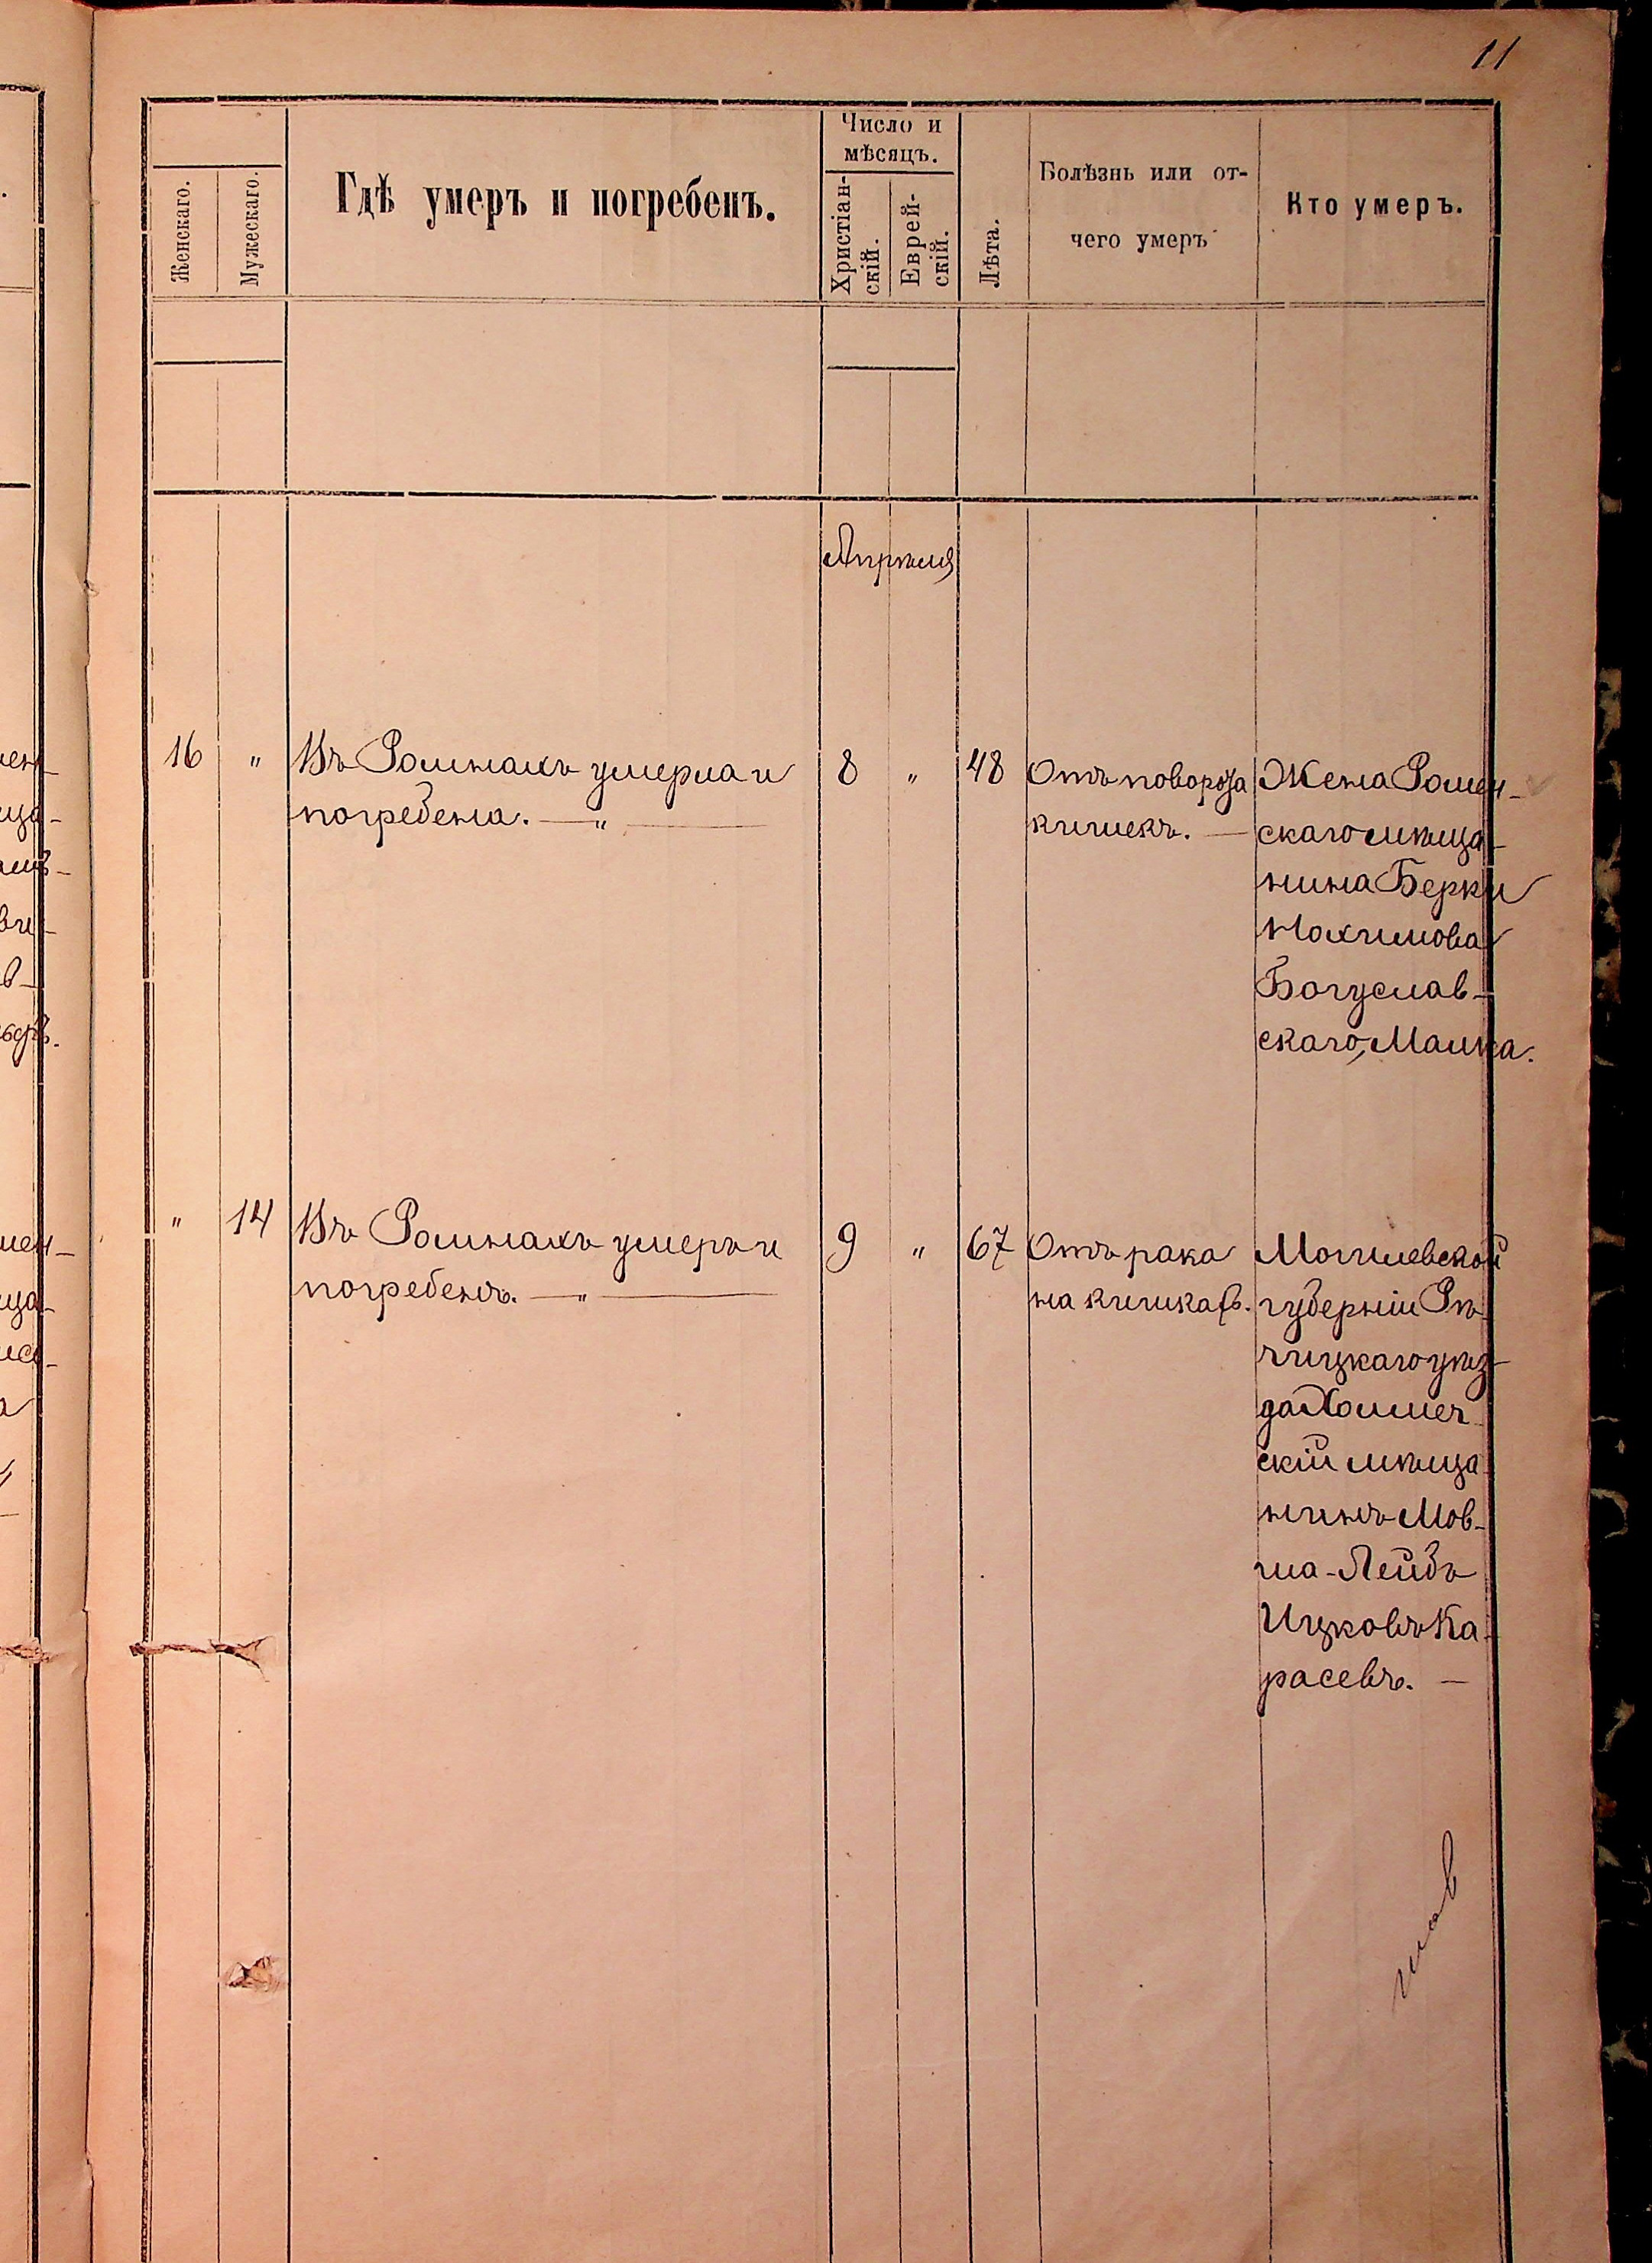 11
Женскаго.
Мужескаго.
Гдѣ умеръ и погребенъ.
Число и
мѣсяцъ.
Христіан-
скій.
Еврей-
скій.
Лѣта.
Болѣзнь или от-
чего умеръ
Кто умеръ.
Апрѣля
16 " Въ Ромнахъ умерла и
погребена. — " —
8 " 48
Отъ поворота
кишекъ. —
Жена Ромен-
скаго мѣща-
нина Берки
Нахимова
Богуслав-
скаго, Малка.
" 14 Въ Ромнахъ умеръ и
погребенъ. — " —
9 " 67
Отъ рака
на кишкахъ.
Могилевской
губерніи Рѣ-
чицкаго уѣз-
да Холмеч
скій мѣща
нинъ Мов-
ша-Лейбъ
Ицковъ Ка-
расевъ. —